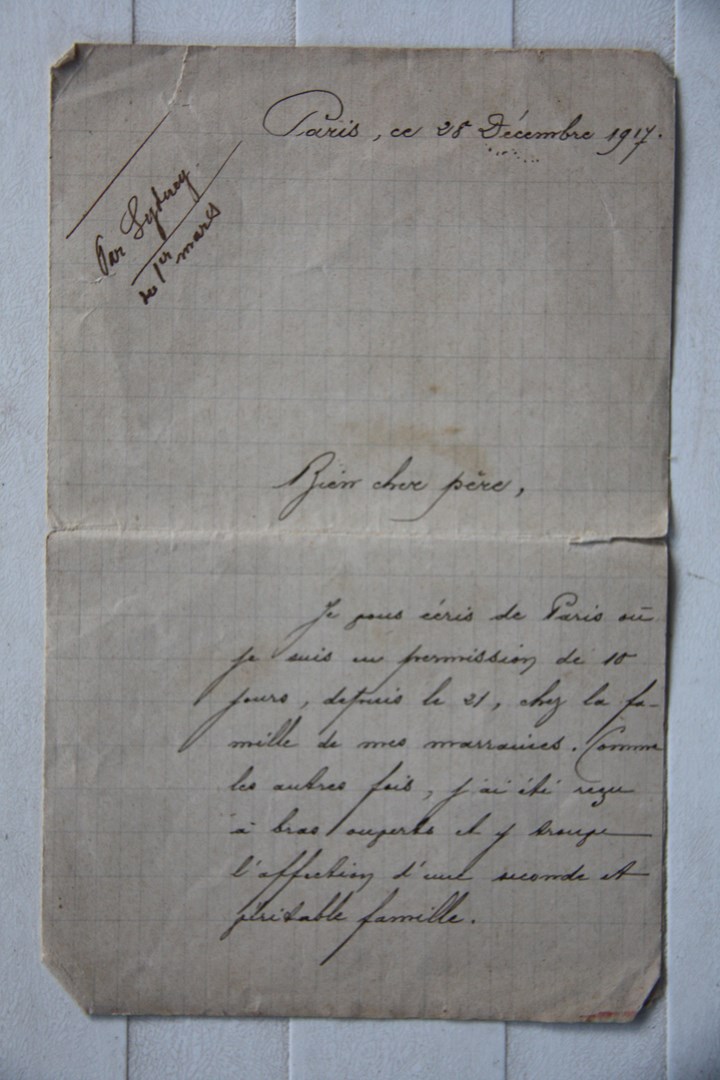 Paris, ce 28 Décembre 1917.
Par Sydney
de 1er mars
Bien cher père,
Je vous écris de Paris où
je suis en permission de 10
jours, depuis le 21, chez la fa-
mille de mes marraines. Comme
les autres fois, j'ai été reçu
à bras ouverts et y trouve
l'affection d'une seconde et
véritable famille.